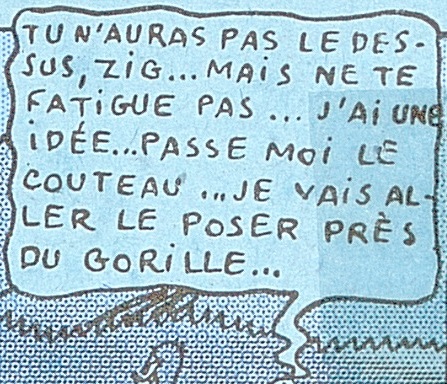 TU N'AURAS PAS LE DES-
SUS, ZIG... MAIS NE TE
FATIGUE PAS ... J'AI UNE
IDÉE...PASSE MOI LE
COUTEAU ...JE VAIS AL-
LER LE POSER PRÈS
DU GORILLE...